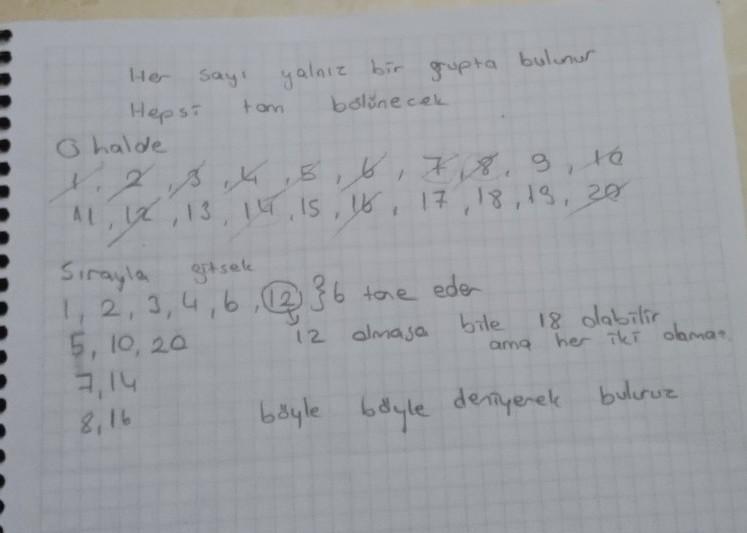 Her sayı yalnız bir grupta bulunur
Hepsi tam bölünecek
O halde
1, 2, 3, 4, 5, 6, 7, 8, 9, 10
11, 12, 13, 14, 15, 16, 17, 18, 19, 20
Sırayla gitsek
1, 2, 3, 4, 6, 12 } 6 tane eder
5, 10, 20 12 olmasa bile 18 olabilir
ama her iki olamaz
7, 14
8, 16 böyle böyle deniyerek buluruz